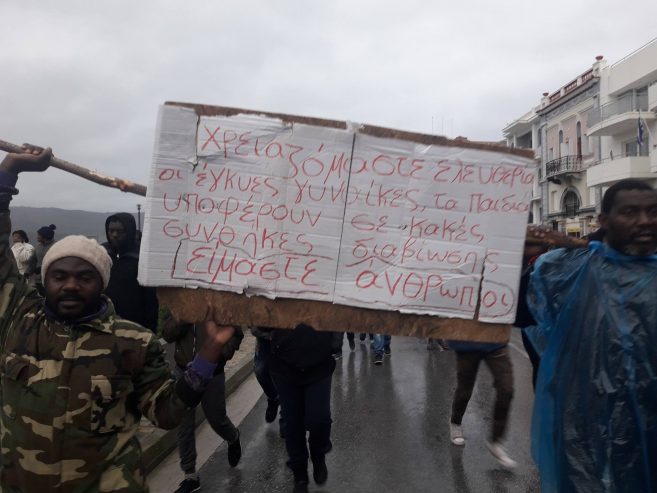 χρειαζόμαστε ελευθερία
οι έγκυες γυναίκες, τα παιδιά
υποφέρουν σε κακές
συνθήκες διαβίωσης
είμαστε άνθρωποι